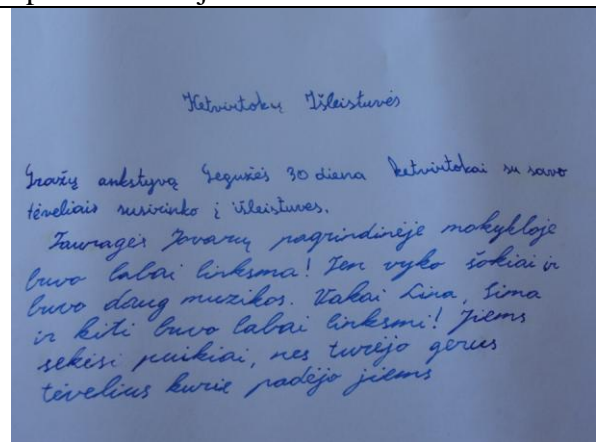 Ketvirtokų Išleistuvės
Gražų ankstyvą Gegužės 30 diena ketvirtokai su savo
tėveliais susirinko į išleistuves.
Tauragės Jovarų pagrindinėje mokykloje
buvo labai linksma! Ten vyko šokiai ir
buvo daug muzikos. Vakai Lina, Sima
ir kiti buvo labai linksmi! Jiems
sekėsi puikiai, nes turėjo gerus
tėvelius kurie padėjo jiems